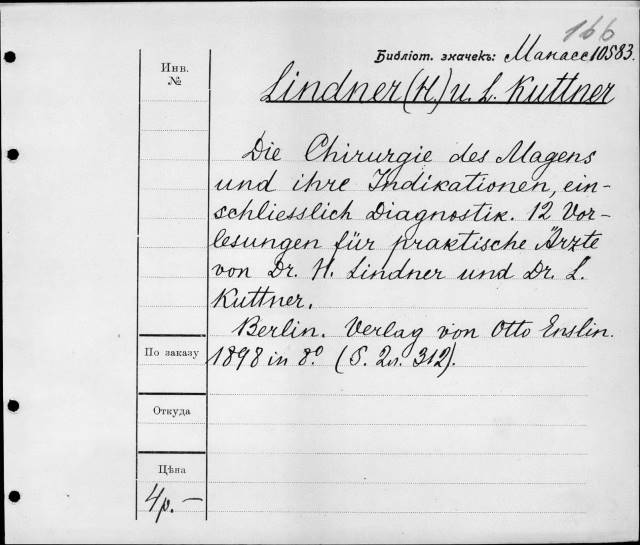 166
Библіот. значекъ: Манасс 10583.
Инв.
№
Lindner (H.) u. L. Kuttner
Die Chirurgie des Magens
und ihre Indikationen, ein-
schliesslich Diagnostik. 12 Vor-
lesungen für praktische Ärzte
von Dr. H. Lindner und Dr. L.
Kuttner.
Berlin. Verlag von Otto Enslin.
По заказу
1898 in 8° (S. 2л. 312).
Откуда
Цѣна
4р. –